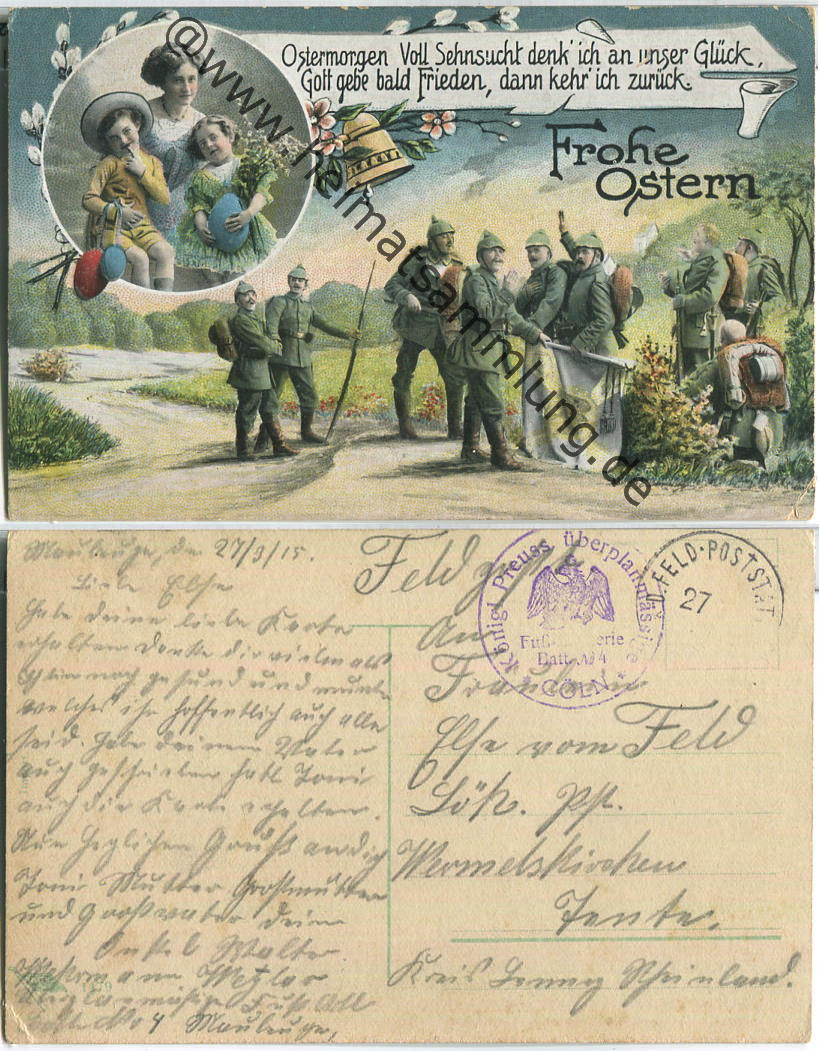 Ostermorgen Voll Sehnsucht denk' ich an unser Glück,
Gott gebe bald Frieden, dann kehr' ich zurück.
Frohe
Ostern
@www.heimatsammlung.de
Maubeuge, den 27/3/15.
Liebe Else
Habe deine liebe Karte
erhalten danke dir vielmals
Ich bin noch gesund und munter
welches ihr hoffentlich auch alle
seid. Habe deinem Vater
auch geschrieben hatt Toni
auch die Karte erhalten.
Nun herzlichen Gruß an dich
Toni Mutter Großmutter
und Großvater dein
Onkel Walter
Maubeuge,
Feldpost
An
Fräulein
Else vom Feld
Wermelskirchen
Tente.
Kreis Lennep Rheinland.
Königl. Preuss. überplanmässige
Batt. No 4
* CÖLN *
FELD-POSTSTAT
27